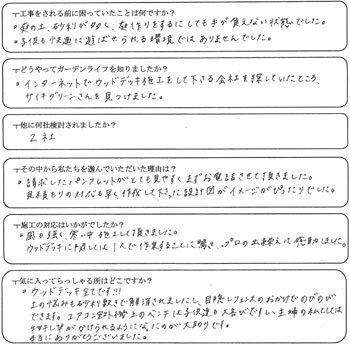 工事をされる前に困っていたことは何ですか?
・庭の土、砂利が多く、庭作りをするにしても手が負えない状態でした。
・子供も快適に遊ばせられる環境ではありませんでした。
どうやってガーデンライフを知りましたか?
・インターネットでウッドデッキ施工をして下さる会社を探していたところ、
サイキグリーンさんを見つけました。
他に何社検討されましたか?
2社
その中から私たちを選んでいただいた理由は?
・請求したパンフレットがとても見やすくまずお電話させて頂きました。
見積もりの対応も早く作成して下さった設計図がイメージがぴったりでした。
施工の対応はいかがでしたか?
・風の強く、寒い中施工して頂きました。
ウッドデッキに関しては1人で作業することに驚き、プロの出来栄えに感動しました。
気に入ってらっしゃる所はどこですか?
・ウッドデッキ全てです!!!
土の悩みも砂利敷きで解消されましたし、目隠しフェンスのおかげでのびのび
できます。エアコン室外機上のベンチは子供達も大喜びですし、主婦の私としては
がかけられるようになったのが大助りです。
本当にありがとうございました。